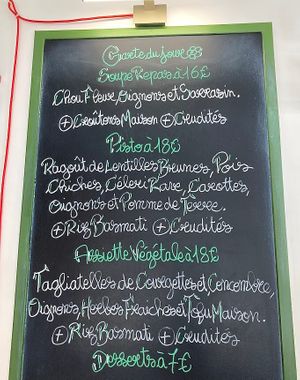 Carte du Jour
Soupe Repas à 16€
Chou Fleur, Oignons et Sarrasin.
⊕ Croutons Maison ⊕ Crudités
Pisto à 18€
Ragoût de Lentilles Brunes, Pois
Chiches, Céleri Rave, Carottes,
Oignons et Pomme de Terre.
⊕ Riz Basmati ⊕ Crudités
Assiette Végétale à 18€
Tagliatelles de Courgettes et Concombre,
Oignons, Herbes Fraiches et Tofu Maison.
⊕ Riz Basmati ⊕ Crudités
Desserts à 7€